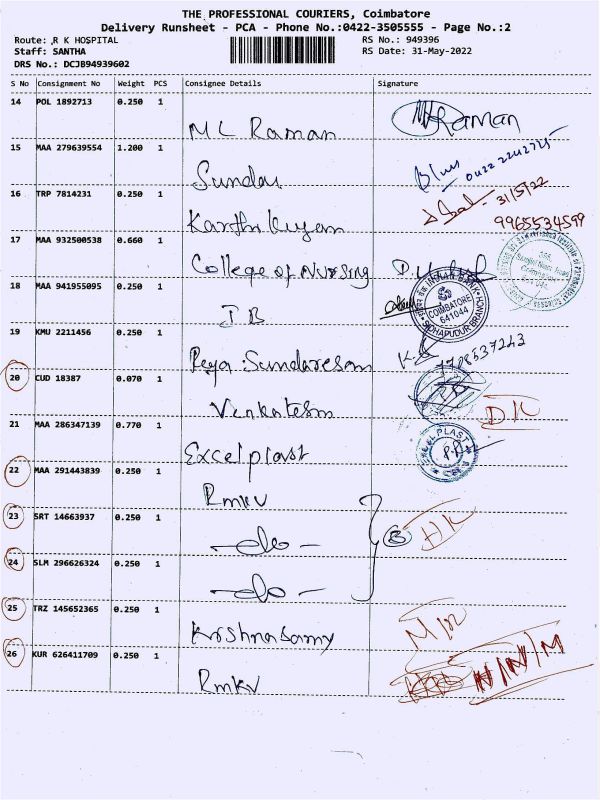 THE PROFESSIONAL COURIERS, Coimbatore
Delivery Runsheet - PCA - Phone No.:0422-3505555 - Page No.:2
Route: R K HOSPITAL RS No.: 949396
Staff: SANTHA RS Date: 31-May-2022
DRS No.: DCJB94939602
S No Consignment No Weight PCS Consignee Details Signature
14 POL 1892713 0.250 1
ML Raman Raman
15 MAA 279639554 1.200 1
Sundar 0422 2242725
16 TRP 7814231 0.250 1 31/5/22
Karthikeyan 9965534599
17 MAA 932500538 0.660 1
College of Nursing
18 MAA 941955095 0.250 1
IB INDIAN BANK COIMBATORE 641044 SIDHAPUDUR BRANCH
19 KMU 2211456 0.250 1
Sundaresan 7708537243
20 CUD 18387 0.070 1
Venkatesh DK
21 MAA 286347139 0.770 1
Excel plast EXCEL PLAST
22 MAA 291443839 0.250 1
Rmkv
23 SRT 14663937 0.250 1
-do-
24 SLM 296626324 0.250 1
-do-
25 TRZ 145652365 0.250 1
Krishnasamy
26 KUR 626411709 0.250 1
Rmkv